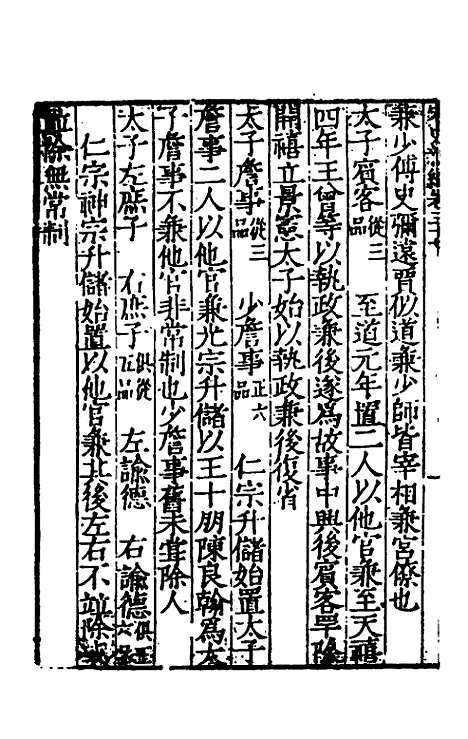 兼少傅史彌遠賈似道兼少師皆宰相兼宮僚也
太子賓客從三品　至道元年置二人以他官兼至天禧
四年王曾等以執政兼後遂爲故事中興後賓客罕除
開禧立景憲太子始以執政兼後復省
太子詹事從三品　少詹事正六品　仁宗升儲始置太子
詹事二人以他官兼光宗升儲以王十朋陳良翰爲太
子詹事不兼他官非常制也少詹事舊未嘗除人
太子左庶子　右庶子俱從五品　左諭德　右諭德俱正六品
仁宗神宗升儲始置以他官兼其後左右不並除或
並除無常制